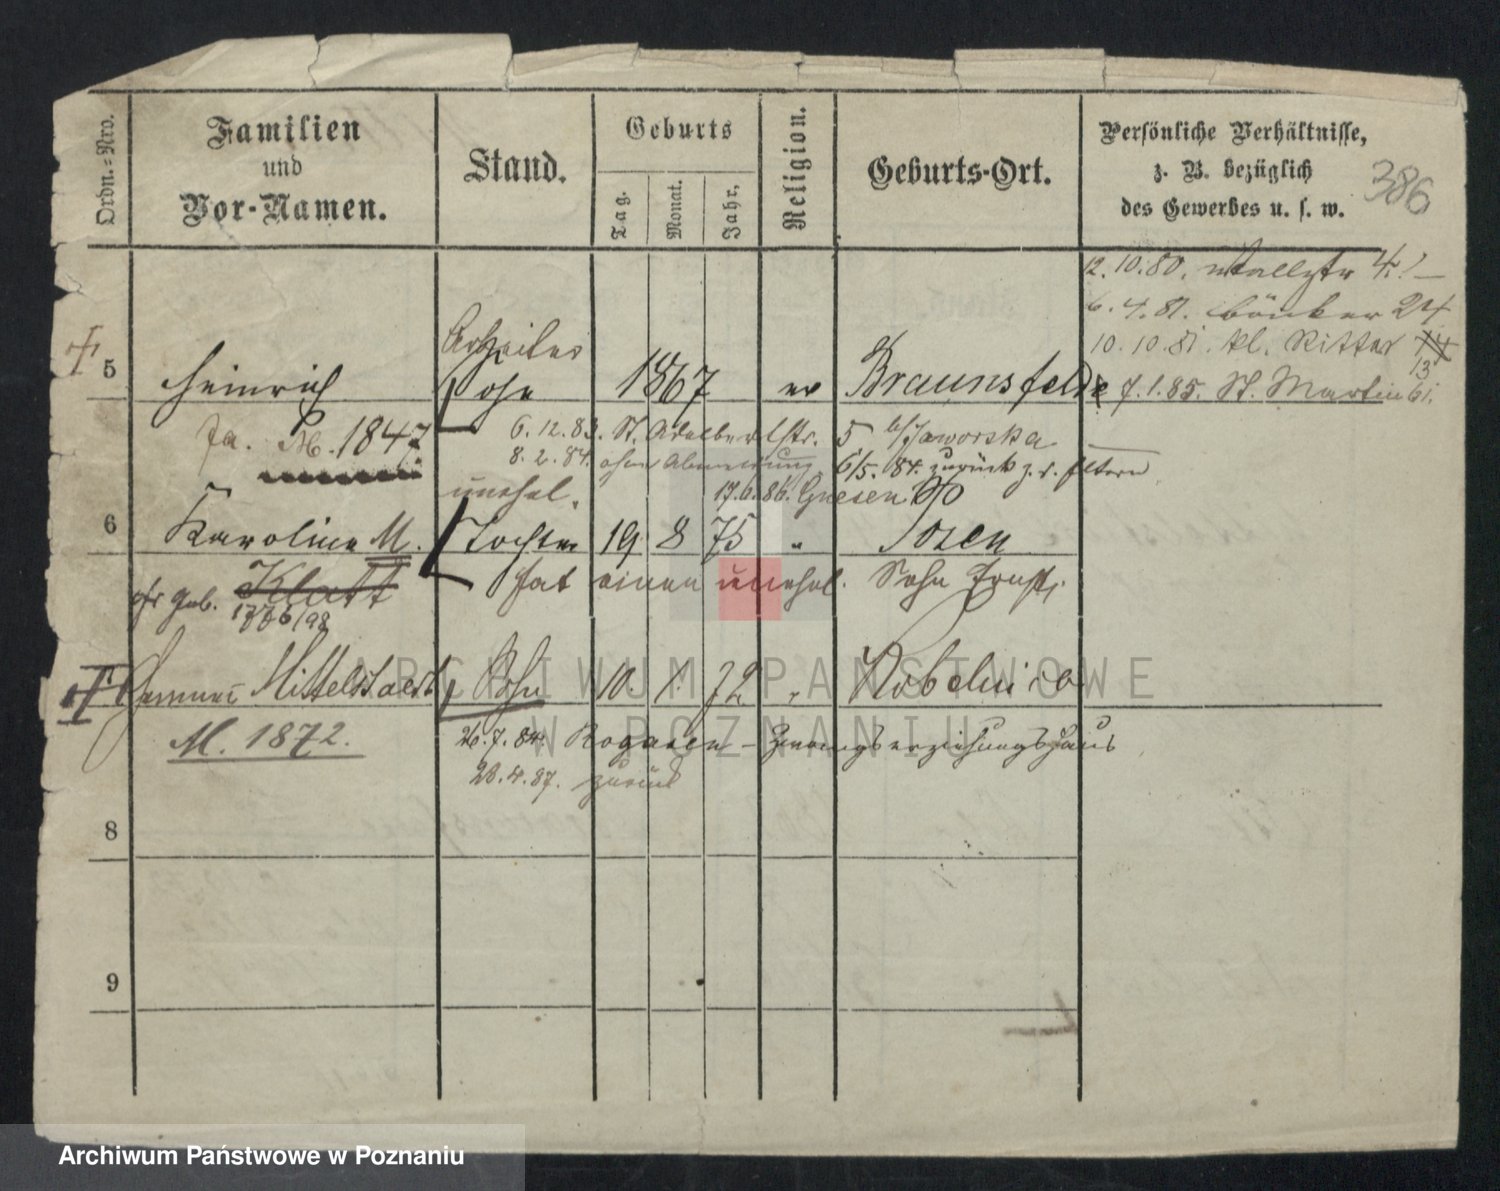 Ordn.=Nro.
Familien
und
Vor-Namen.
Stand.
Geburts
Tag.
Monat.
Jahr.
Religion.
Geburts-Ort.
Persönliche Verhältnisse,
z. B. bezüglich
des Gewerbes u. s. w.
386
12.10.80. Wallstr 4.
6.4.81. 24
10.10.81. kl. Ritter 14
13
7.1.85. St. Martin 61.
Arbeiter
5 Heinrich Sohn 1867 ev Braunsfelde
M. 1847
6.12.83. St. Adalbertstr. 5 b/Jaworska
8.2.84. ohne Abmeldung 6/5. 84. zurück z. d. Eltern
17.6.86. Gnesen
unehel.
6 Karoline M. Tochter 19 8 75 " Posen
hat einen unehel. Sohn
geb. Klatt
1776/98
Mittelstaedt Sohn 10 1. 72 "
M. 1872.
26.7.84. Rogasen - Zwangserziehungshaus
28.4.87. zurück
8
9
ARCHIWUM PAŃSTWOWE
W POZNANIU
Archiwum Państwowe w Poznaniu